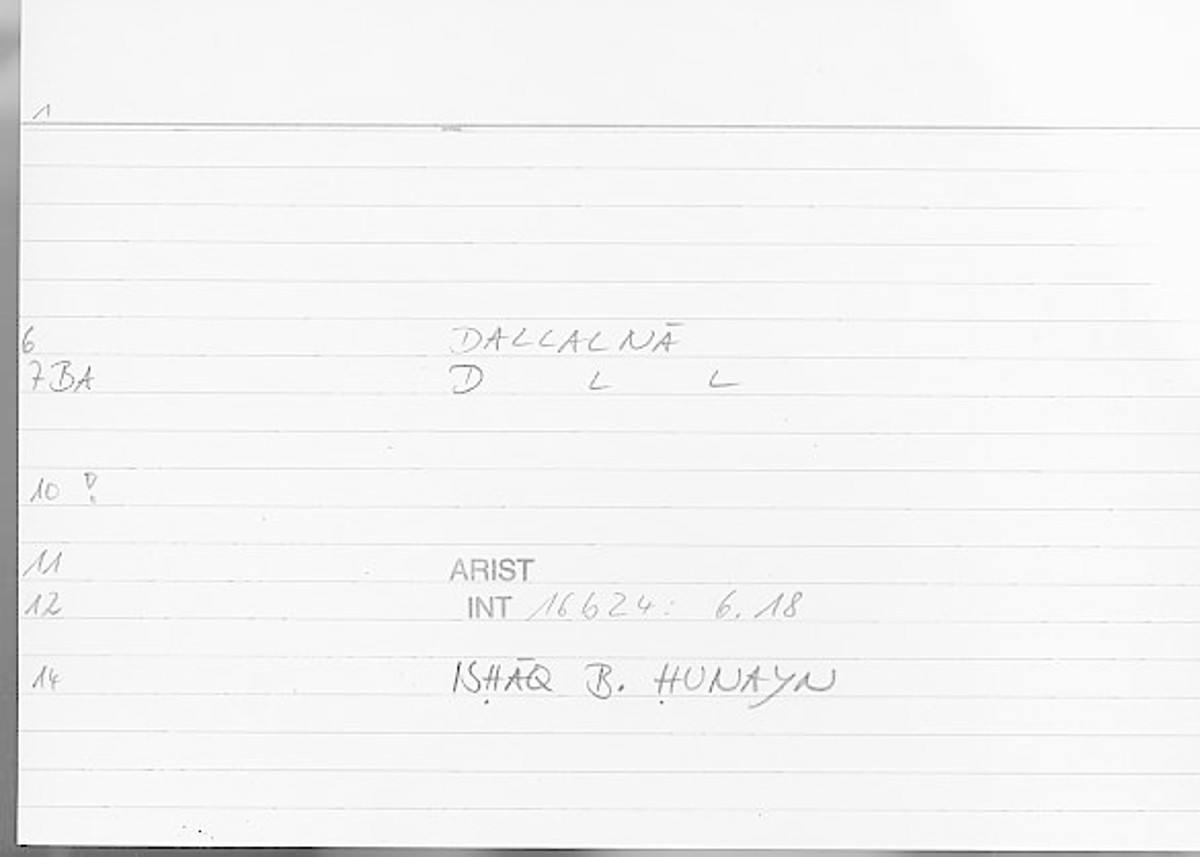 1
6 DALLALNĀ
7BA D L L
10 !
11 ARIST
12 INT 16624: 6.18
14 ISḤĀQ B. ḤUNAYN